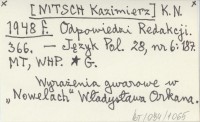 [NITSCH Kazimierz] K.N.
1948 r. Odpowiedzi Redakcji.
366. — Język Pol. 28, nr 6: 187.
MT, WHP. * G.
Wyrażenia gwarowe w
„Nowelach" Władysława Orkana.